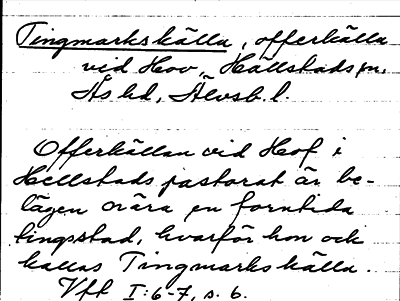 Tingmarkskälla, offerkälla
vid Hov, Hällstads sn.
Ås hd, Älvsb. l.
Offerkällan vid Hof i
Hellstads pastorat är be-
lägen nära en forntida
tingsstad, hvarför hon och
kallas Tingmarks källa.
Vft I:6-7, s. 6.